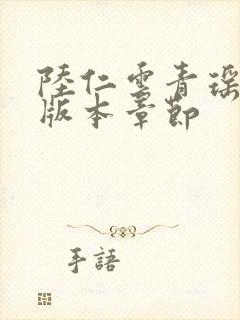 陸仁雲青瑶
版本章節
手語